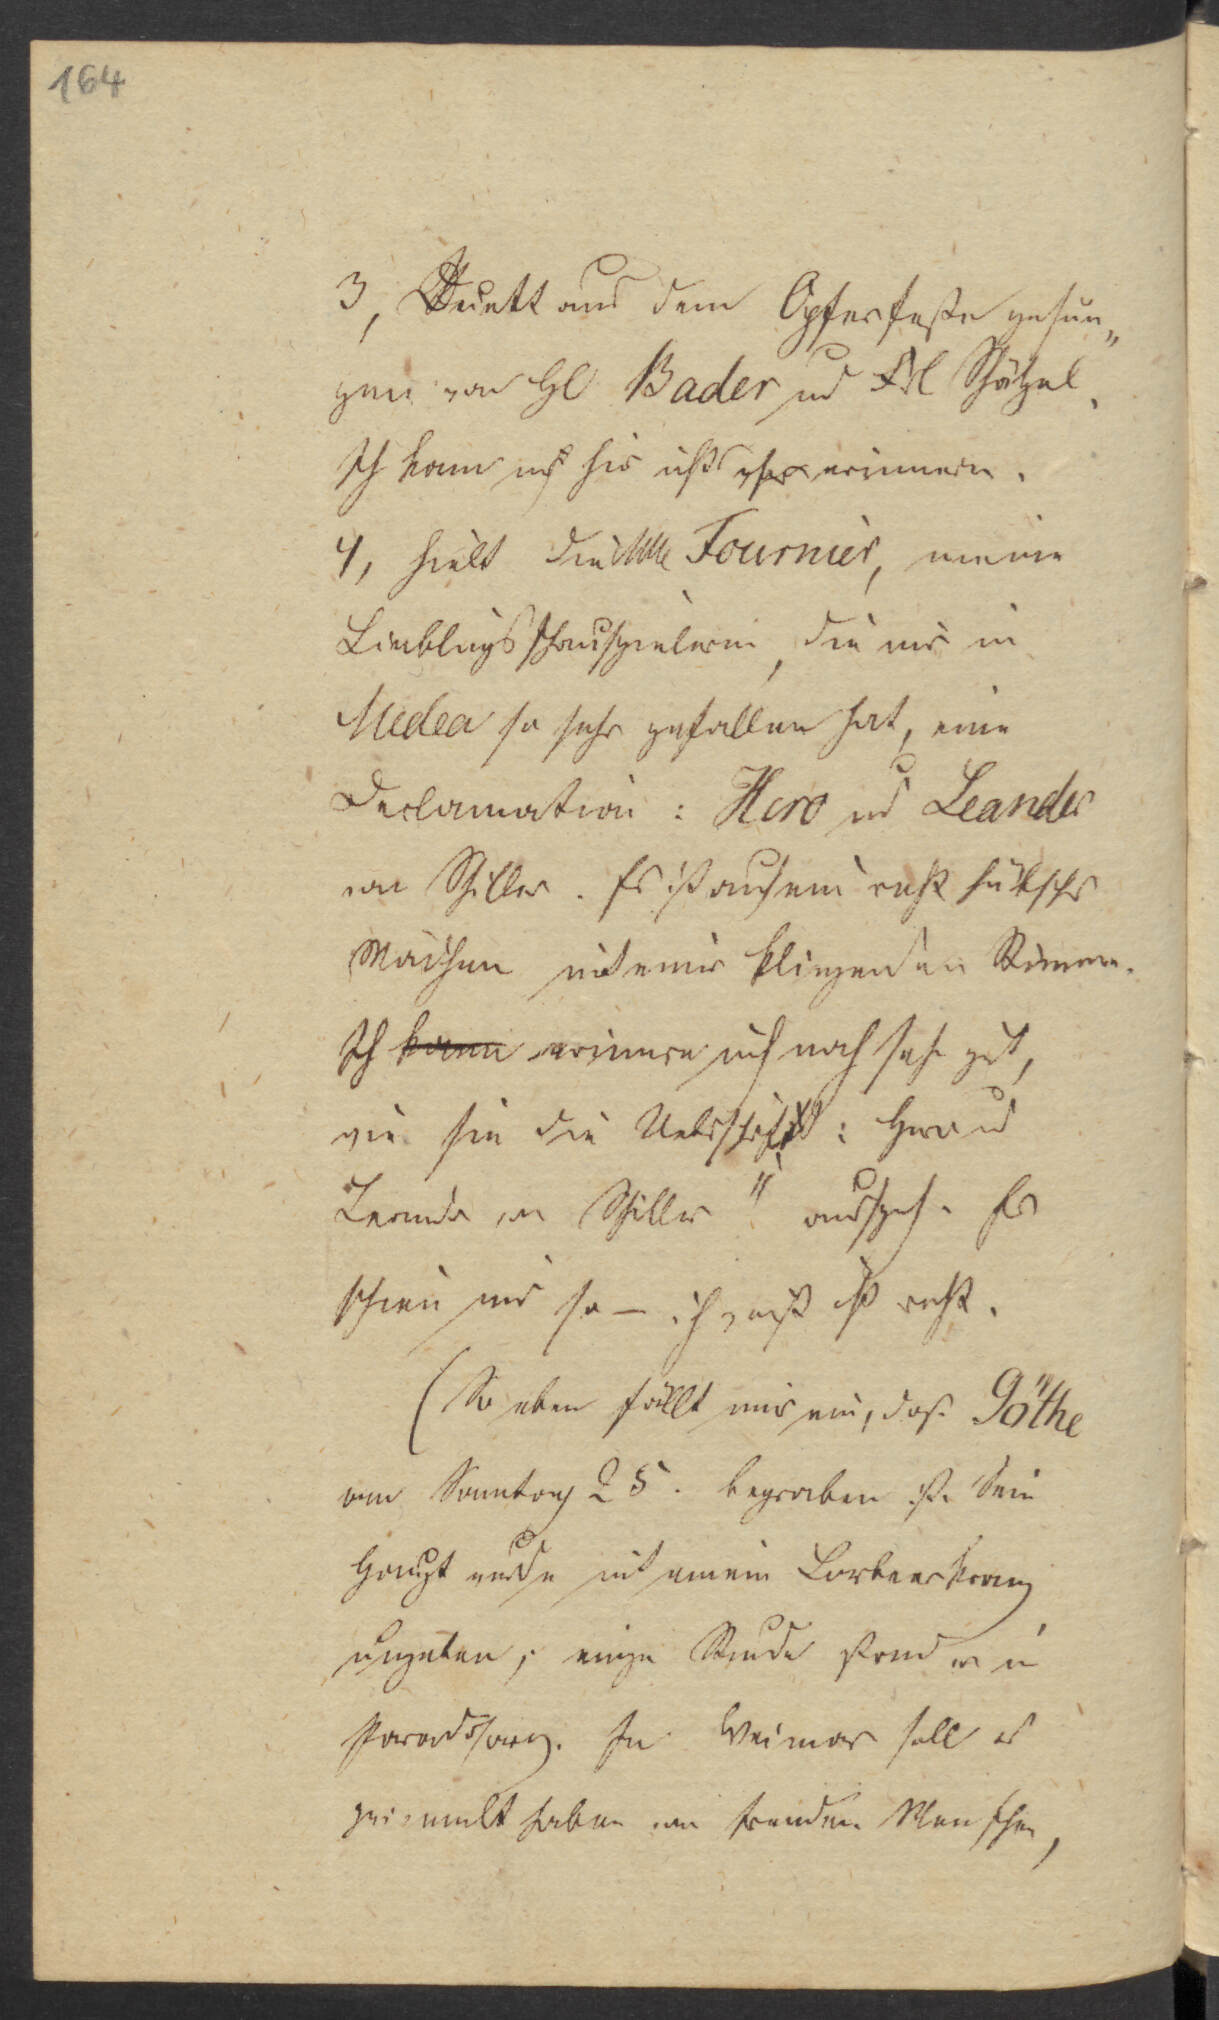 164
3, Duett aus dem Opferfeste gesun„
gen von H Bader und Frl Schätzel.
Ich kann mich hir nichts mehr erinnern.
4, hielt die Mlle Fournier, meine
Lieblingsschauspielerin, die mir in
Medea so sehr gefallen hat, eine
Declamation: Hero und Leander
von Schiller. Es ist auch ein recht hübsches
Mädchen mit einer klingenden Stimme.
Ich kann erinnere mich noch sehr gut,
wie sie die Ueberschrift: Hero und
Leander von Schiller" aussprach. Es
schien mir so – ich weiß nicht recht.
(So eben fällt mir ein, daß Göthe
am Sonntag 25. begraben ist. Sein
Haupt wurde mit einem Lorbeerkranz
umgeben; einige Stunde stand er im
Paradesarg. In Weimar soll es
gewimmelt haben von fremden Menschen,